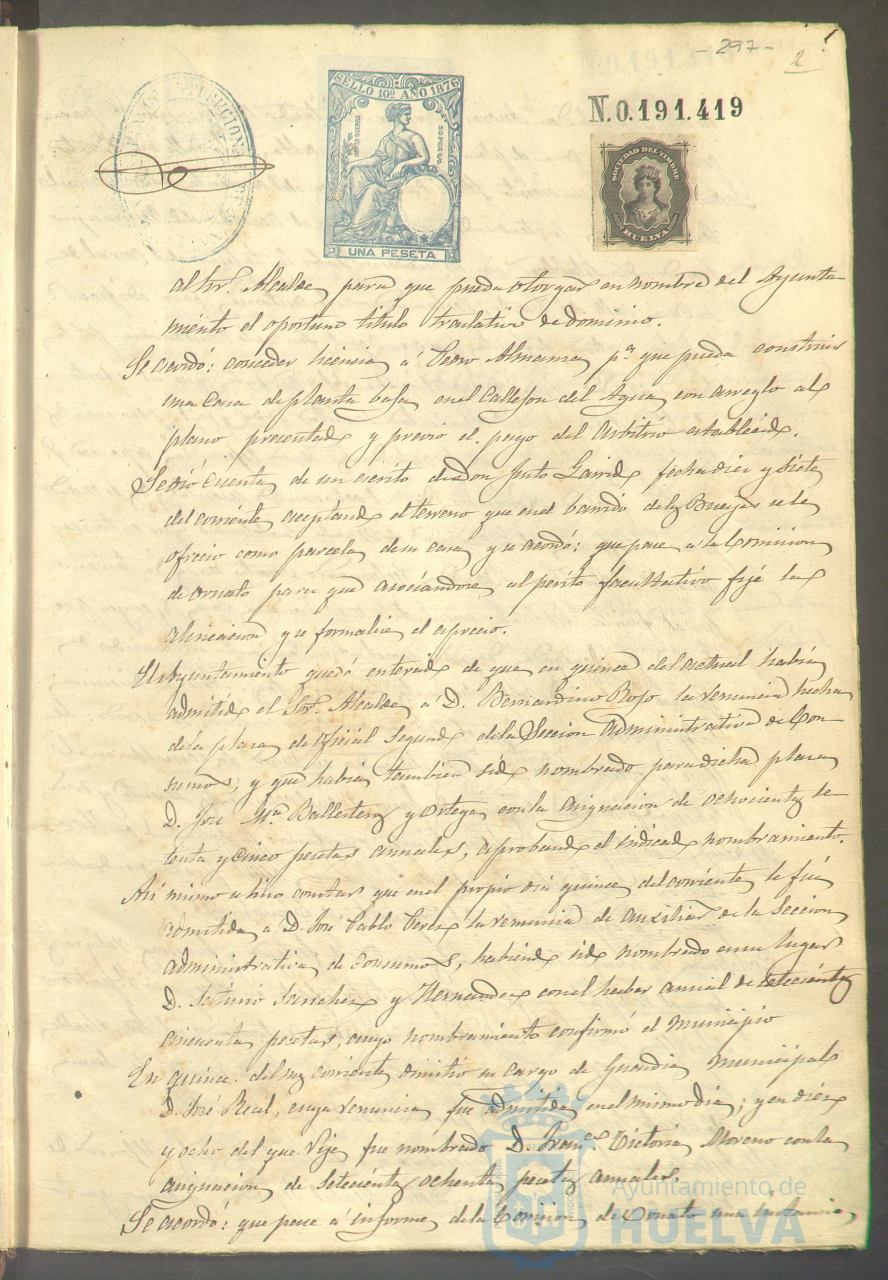 - 297 -
2
SELLO 10º AÑO 1876
UNA PESETA
N.0.191.419
SOCIEDAD DEL TIMBRE
HUELVA
al Sor. Alcalde para que pueda otorgar en nombre del Ayunta
miento el oportuno titulo traslativo de dominio.
Se acordó: conceder licencia á Pedro Almansa pa. que pueda construir
una casa de planta baja en el Callejon del Agua con arreglo al
plano presentado y previo el pago del arbitrio establecido.
Se dió cuenta de un escrito de Don Justo Garrido fecha diez y siete
del corriente aceptando el terreno que en el barrido de las Bueyas se le
ofrecio como parcela de su casa y se acordó: que pase a la Comision
de ornato para que asociandose al perito facultativo fije la
alineacion y se formalice el aprecio.
El Ayuntamiento quedó enterado de que en quince del actual habia
admitido el Sor. Alcalde á D. Bernardino Bojo la renuncia hecha
de la plaza de Oficial Segundo de la Seccion Administrativa de Con-
sumos, y que habia tambien sido nombrado para dicha plaza
D. Jose Ma Ballesteros y Ortega con la asignacion de ochocientas se-
tenta y cinco pesetas anuales, aprobando el indicado nombramiento.
Asi mismo se hizo constar que en el propio dia quince del corriente le fué
admitida a D. José Pablo Perez la renuncia de auxiliar de la Seccion
administrativa de Consumos, habiendo sido nombrado en su lugar
D. Saturio Sanchez y Hernandez con el haber anual de setecientas
cincuenta pesetas, cuyo nombramiento confirmó el Municipio
En quince del mes corriente dimitió su cargo de Guardia Municipal
D. José Real, cuya renuncia fue admitida en el mismo dia; y en diez
y ocho del que rije fue nombrado D. Franco Victoria Moreno con la
asignacion de setecientas ochenta pesetas anuales.
Se acordó: que pase á informe de la Comision de Ornato una instancia,
Ayuntamiento de
HUELVA